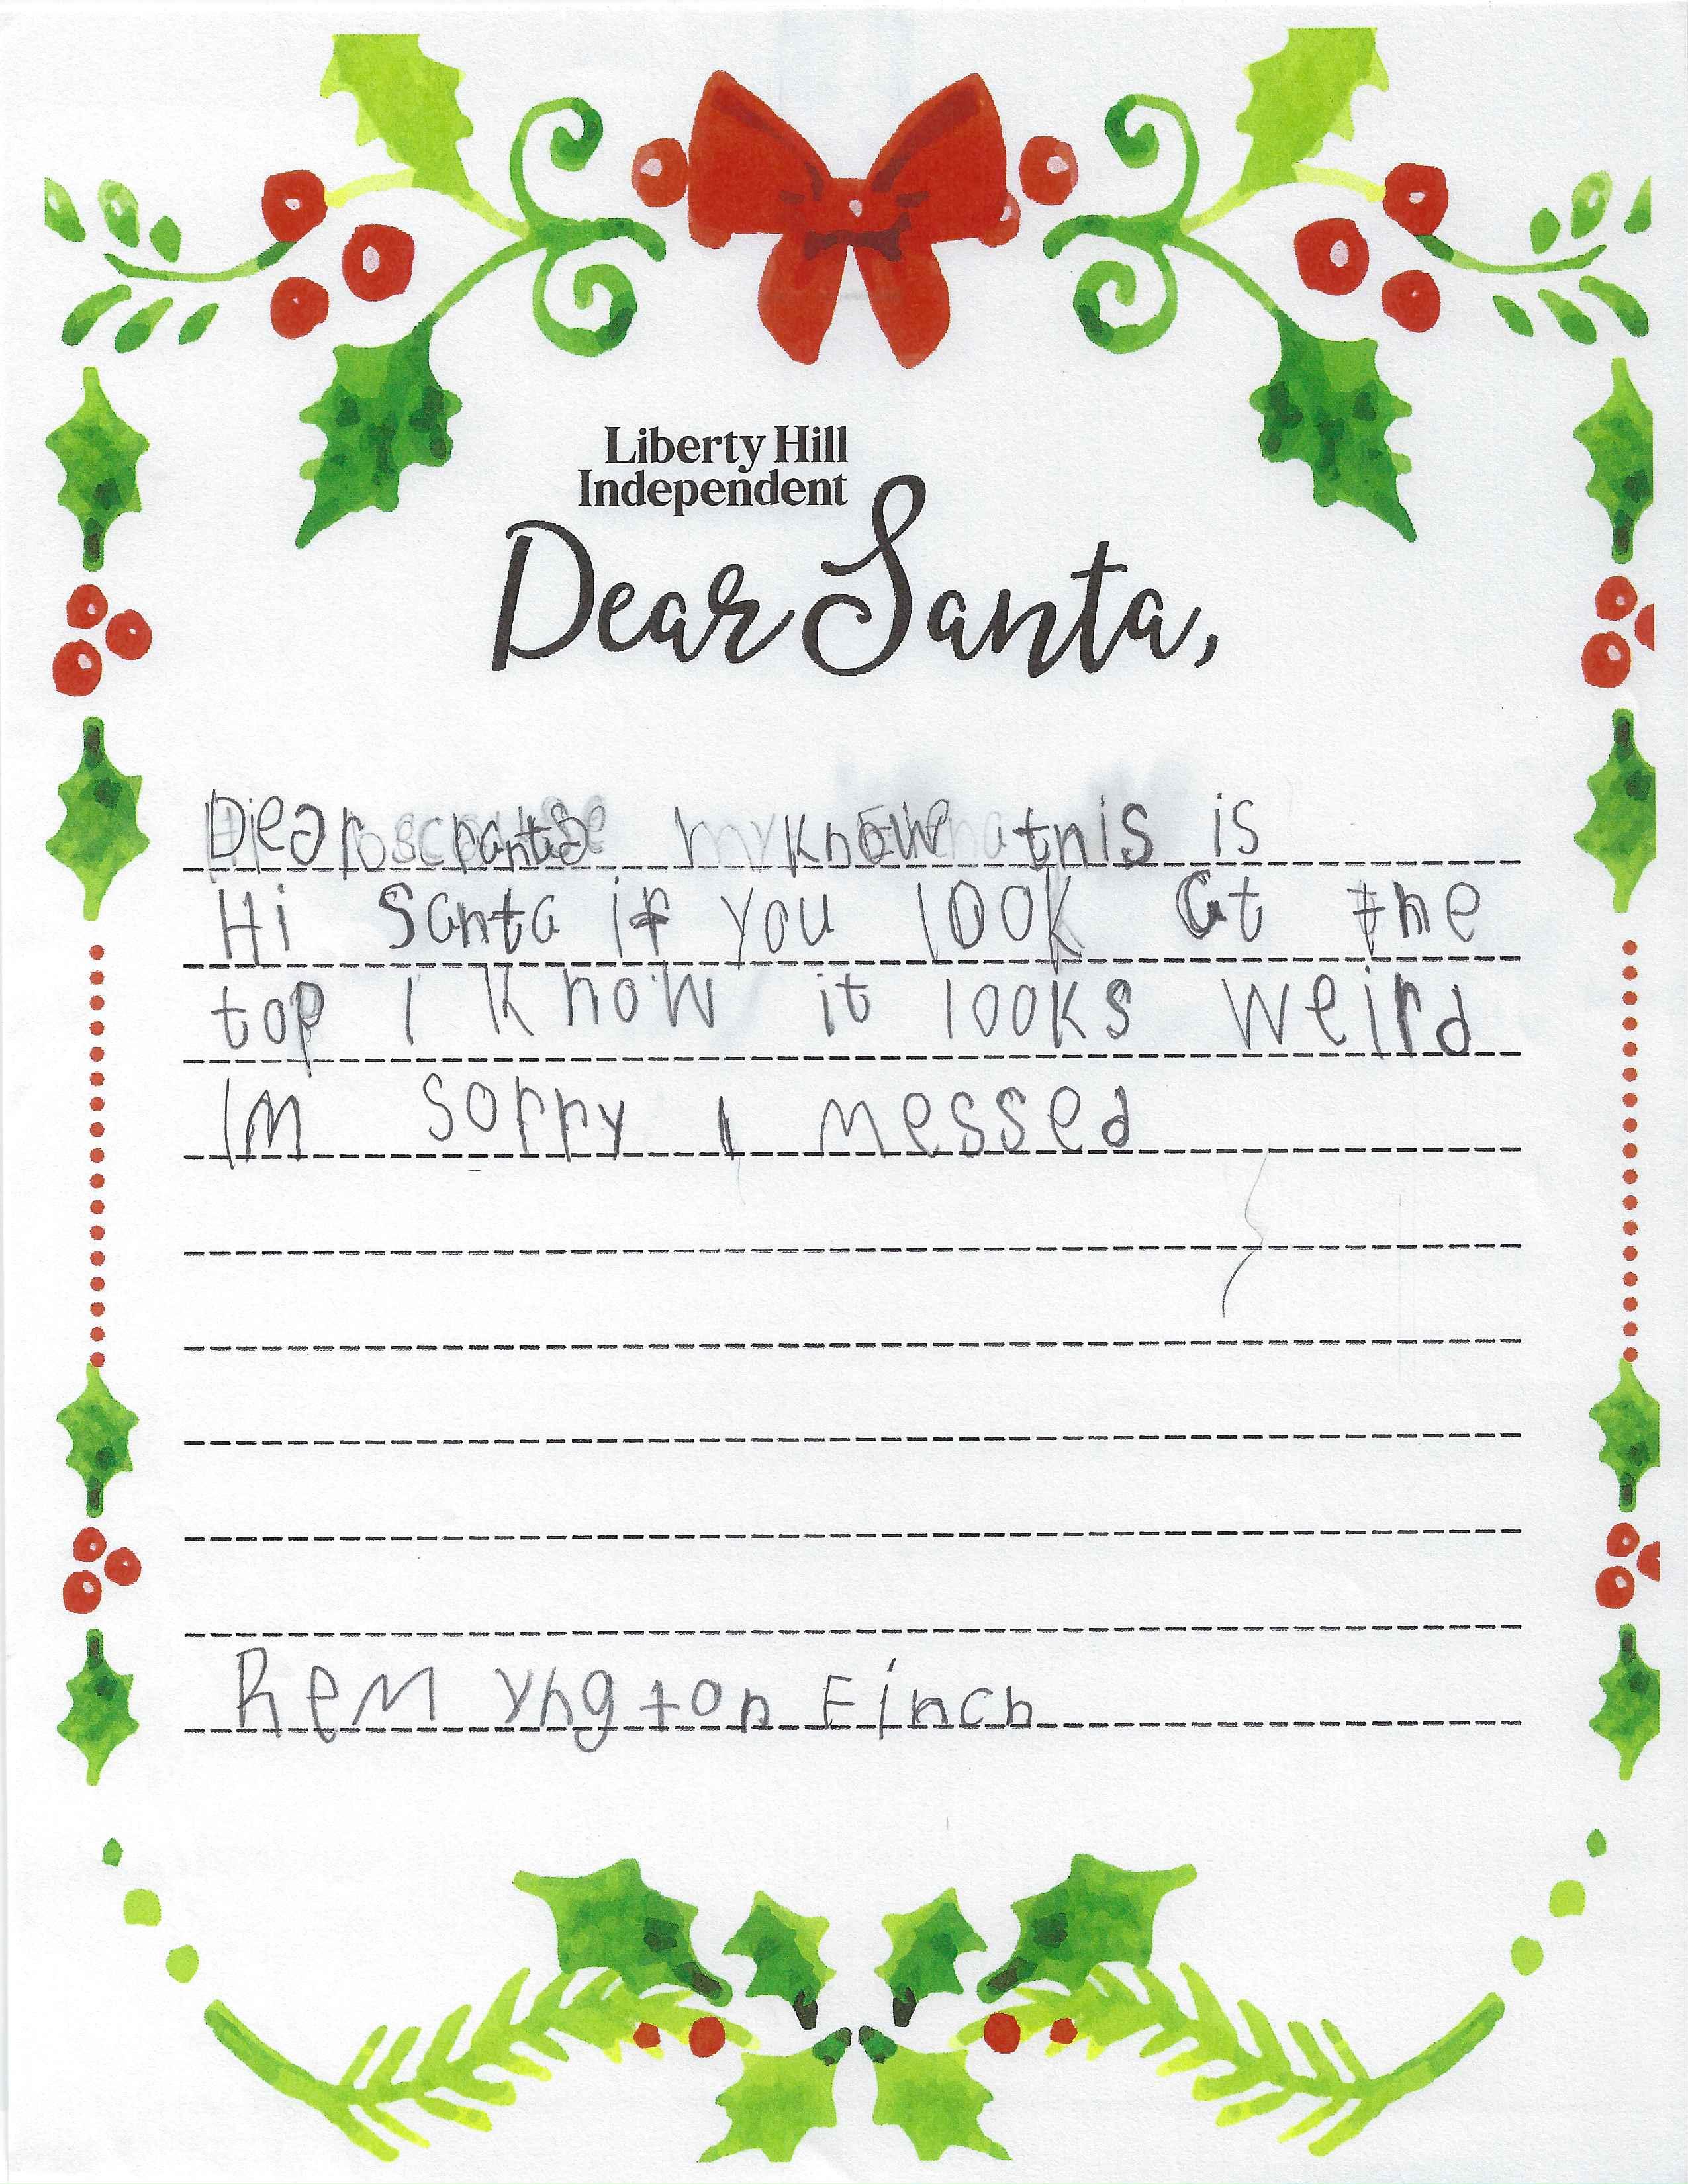 Liberty Hill
Independent
Dear Santa,
Dear santa know this is
Hi Santa if you look at the
top I know it looks weird
Im sorry I messed
Remyngton Finch